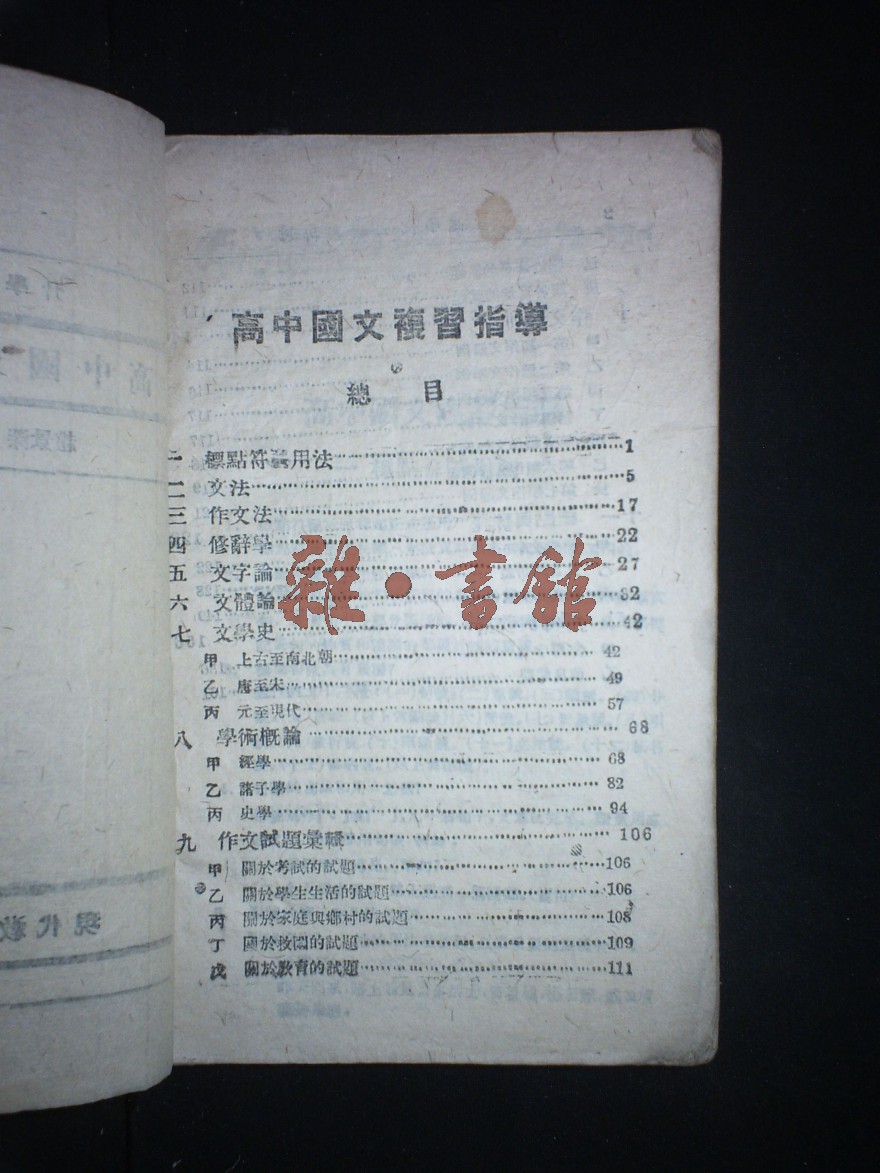 高中國文複習指導
總目
一 標點符號用法 1
二 文法 5
三 作文法 17
四 修辭學 22
五 文字論 27
六 文體論 32
七 文學史 42
甲 上古至南北朝 42
乙 唐至宋 49
丙 元至現代 57
八 學術概論 68
甲 經學 68
乙 諸子學 82
丙 史學 94
九 作文試題彙輯 106
甲 關於考試的試題 106
乙 關於學生生活的試題 106
丙 關於家庭與鄉村的試題 108
丁 關於校園的試題 109
戊 關於教育的試題 111
雜·書館